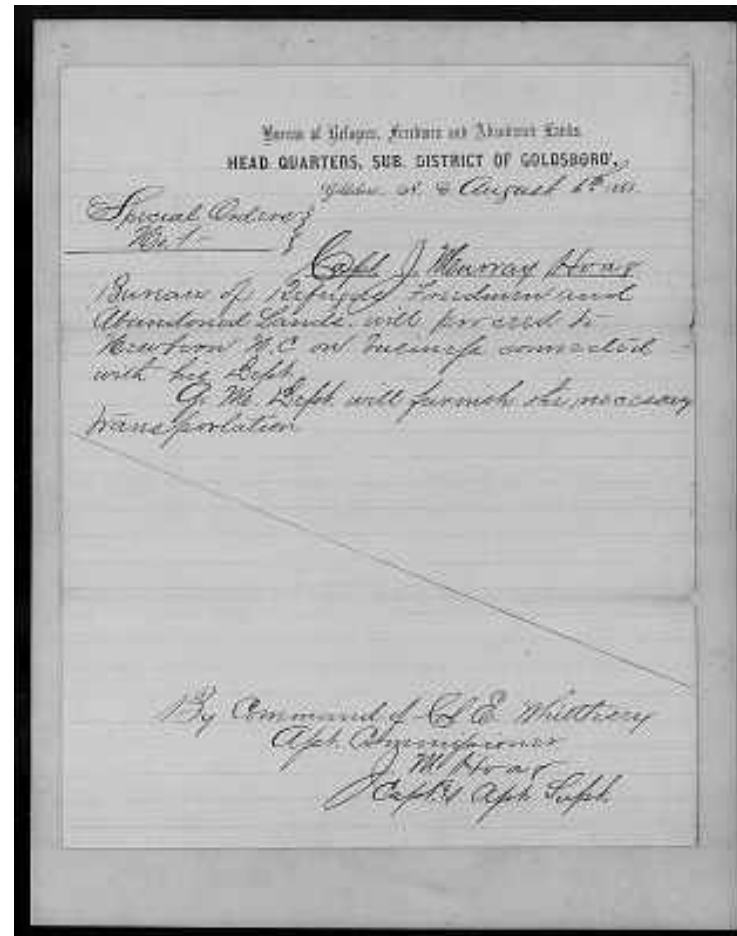 Bureau of Refugees, Freedmen and Abandoned Lands.
HEAD QUARTERS, SUB. DISTRICT OF GOLDSBORO',
Goldsboro N. C. August 6th 186
Special Orders }
No. 1 }
Capt J. Murray Hoag
Bureau of Refugees Freedmen and
Abandoned Lands. will proceed to
Newbern N.C. on business connected
with his Dept.
Q. M. Dept. will furnish the necessary
transportation
By Command of Col E. Whittlesey
Asst. Commissioner
J M Hoag
Capt & Asst Supt.